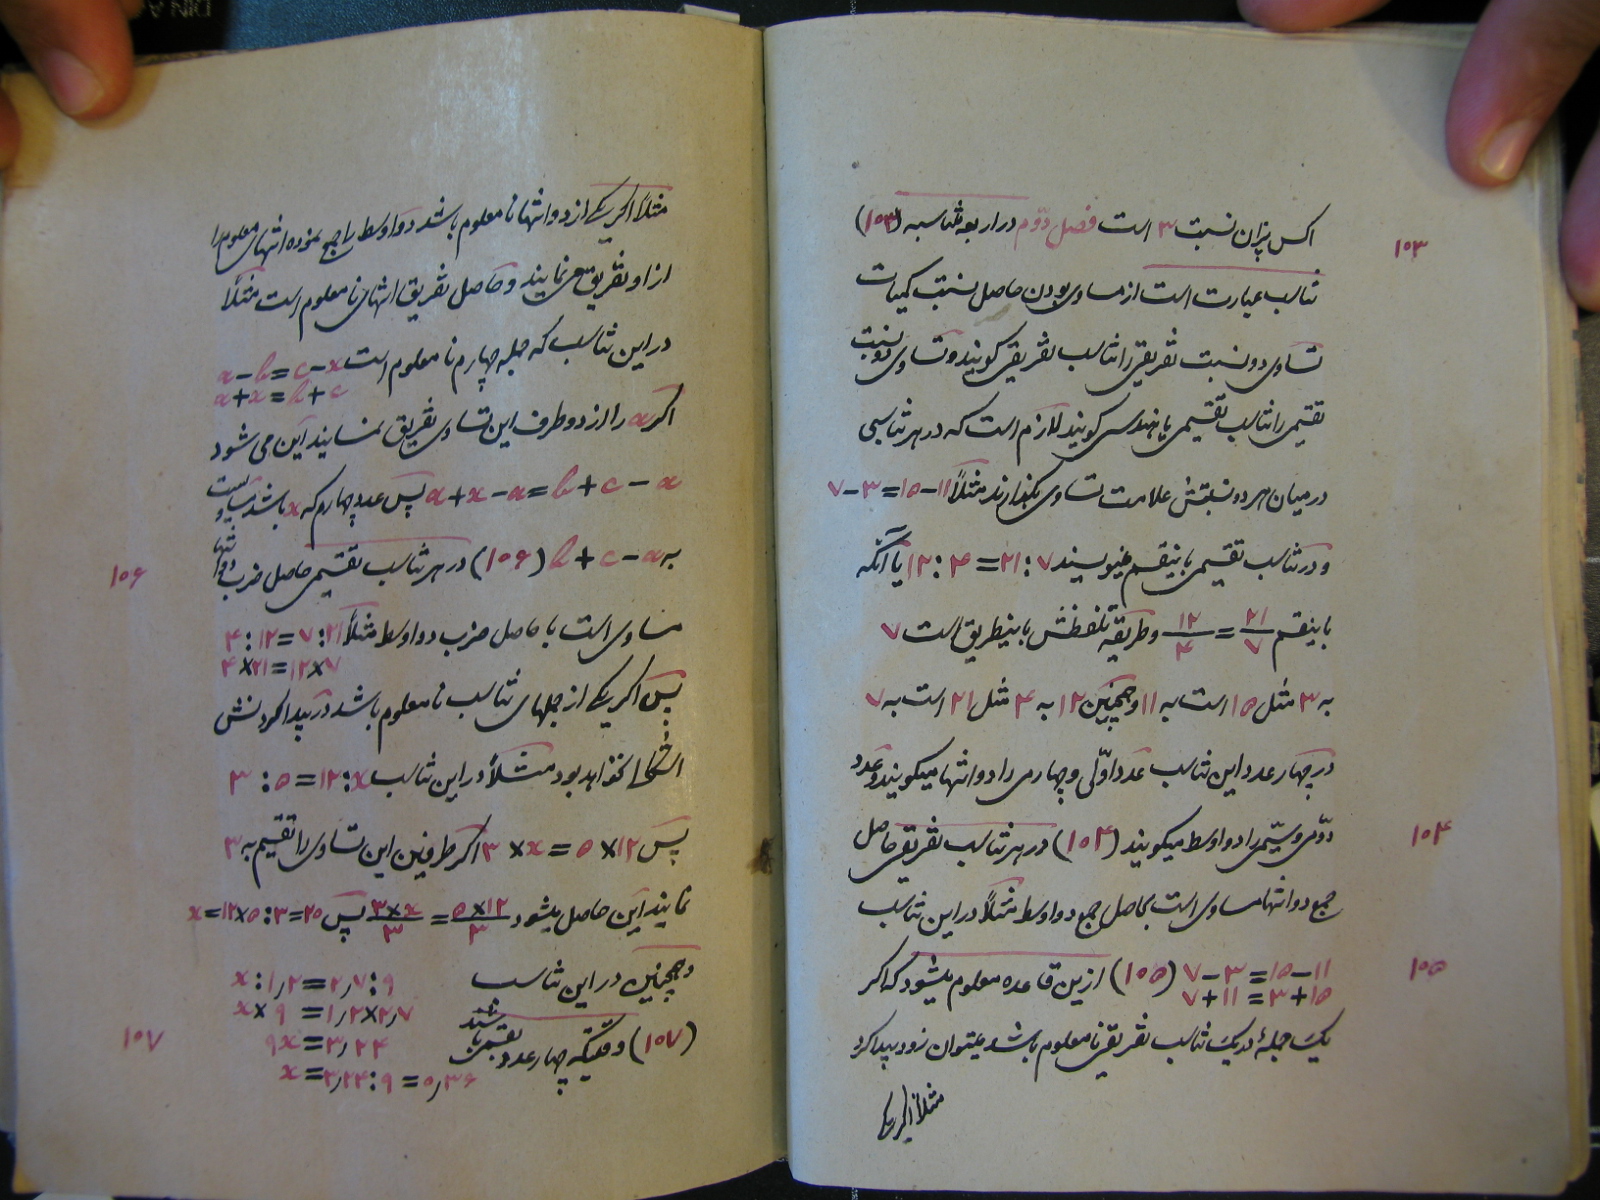 اکس پزان نسبت ۳ است فصل دوّم در اربعه متناسبه (۱۰۳)
۱۰۳
تناسب عبارت است از مساوی بودن حاصل نسبت کمیات
تساوی دو نسبت تفریقی را تناسب تفریقی گویند و تساوی دو نسبت
تقسیمی را تناسب تقسیمی یا هندسی گویند لازم است که در هر تناسبی
در میان هر دو نسبتش علامت تساوی بگذارند مثلاً ۱۱–۱۵=۳–۷
و در تناسب تقسیمی باینقسم مینویسند ۷:۲۱=۴:۱۲ یا آنکه
باینقسم ۲۱/۷ = ۱۲/۴ و طریقه تلفظش باینطریق است ۷
به ۳ مثل ۱۵ است به ۱۱ و همچنین ۱۲ به ۴ مثل ۲۱ است به ۷
در چهار عدد این تناسب عدد اوّلی و چهارمی را دو انتها میگویند و عدد
دوّمی و سیّمی را دو اوسط میگویند (۱۰۴) در هر تناسب تفریقی حاصل
۱۰۴
جمع دو انتها مساوی است بحاصل جمع دو اوسط مثلاً در این تناسب
۷–۳=۱۵–۱۱ (۱۰۵) ازین قاعده معلوم میشود که اگر
۷+۱۱=۳+۱۵
۱۰۵
یک جملهٔ در یک تناسب تفریقی نامعلوم باشد میتوان زود پیدا کرد
مثلاً اگر یکی
مثلاً اگر یکی از دو انتها نامعلوم باشد دو اوسط را جمع نموده انتهای معلوم را
از او تفریق می نمایند و حاصل تفریق انتهای نامعلوم است مثلاً
در این تناسب که جمله چهارم نامعلوم است a–b=c–x
a+x=b+c
اگر a را از دو طرف این تساوی تفریق نمایند این می شود
a+x–a=b+c–a پس عدد چهارم که x باشد مساویست
به b+c–a (۱۰۶) در هر تناسب تقسیمی حاصل ضرب دو انتها
۱۰۶
مساوی است با حاصل ضرب دو اوسط مثلاً ۴:۱۲=۷:۲۱
۴×۲۱=۱۲×۷
پس اگر یکی از جملهای تناسب نامعلوم باشد در پیدا کردنش
اشکالی نخواهد بود مثلاً در این تناسب ۳:۵=۱۲:x
پس ۳×x=۵×۱۲ اگر طرفین این تساوی را تقسیم به ۳
نمایند این حاصل میشود ۵×۱۲/۳ = ۳×x/۳ پس x=۱۲×۵:۳=۲۰
و همچنین در این تناسب x:۱٫۲=۲٫۷:۹
x×۹=۱٫۲×۲٫۷
(۱۰۷) وقتیکه چهار عدد تقسیمی باشند
۹x=۳٫۲۴
۱۰۷
x=۳٫۲۴:۹=۰٫۳۶